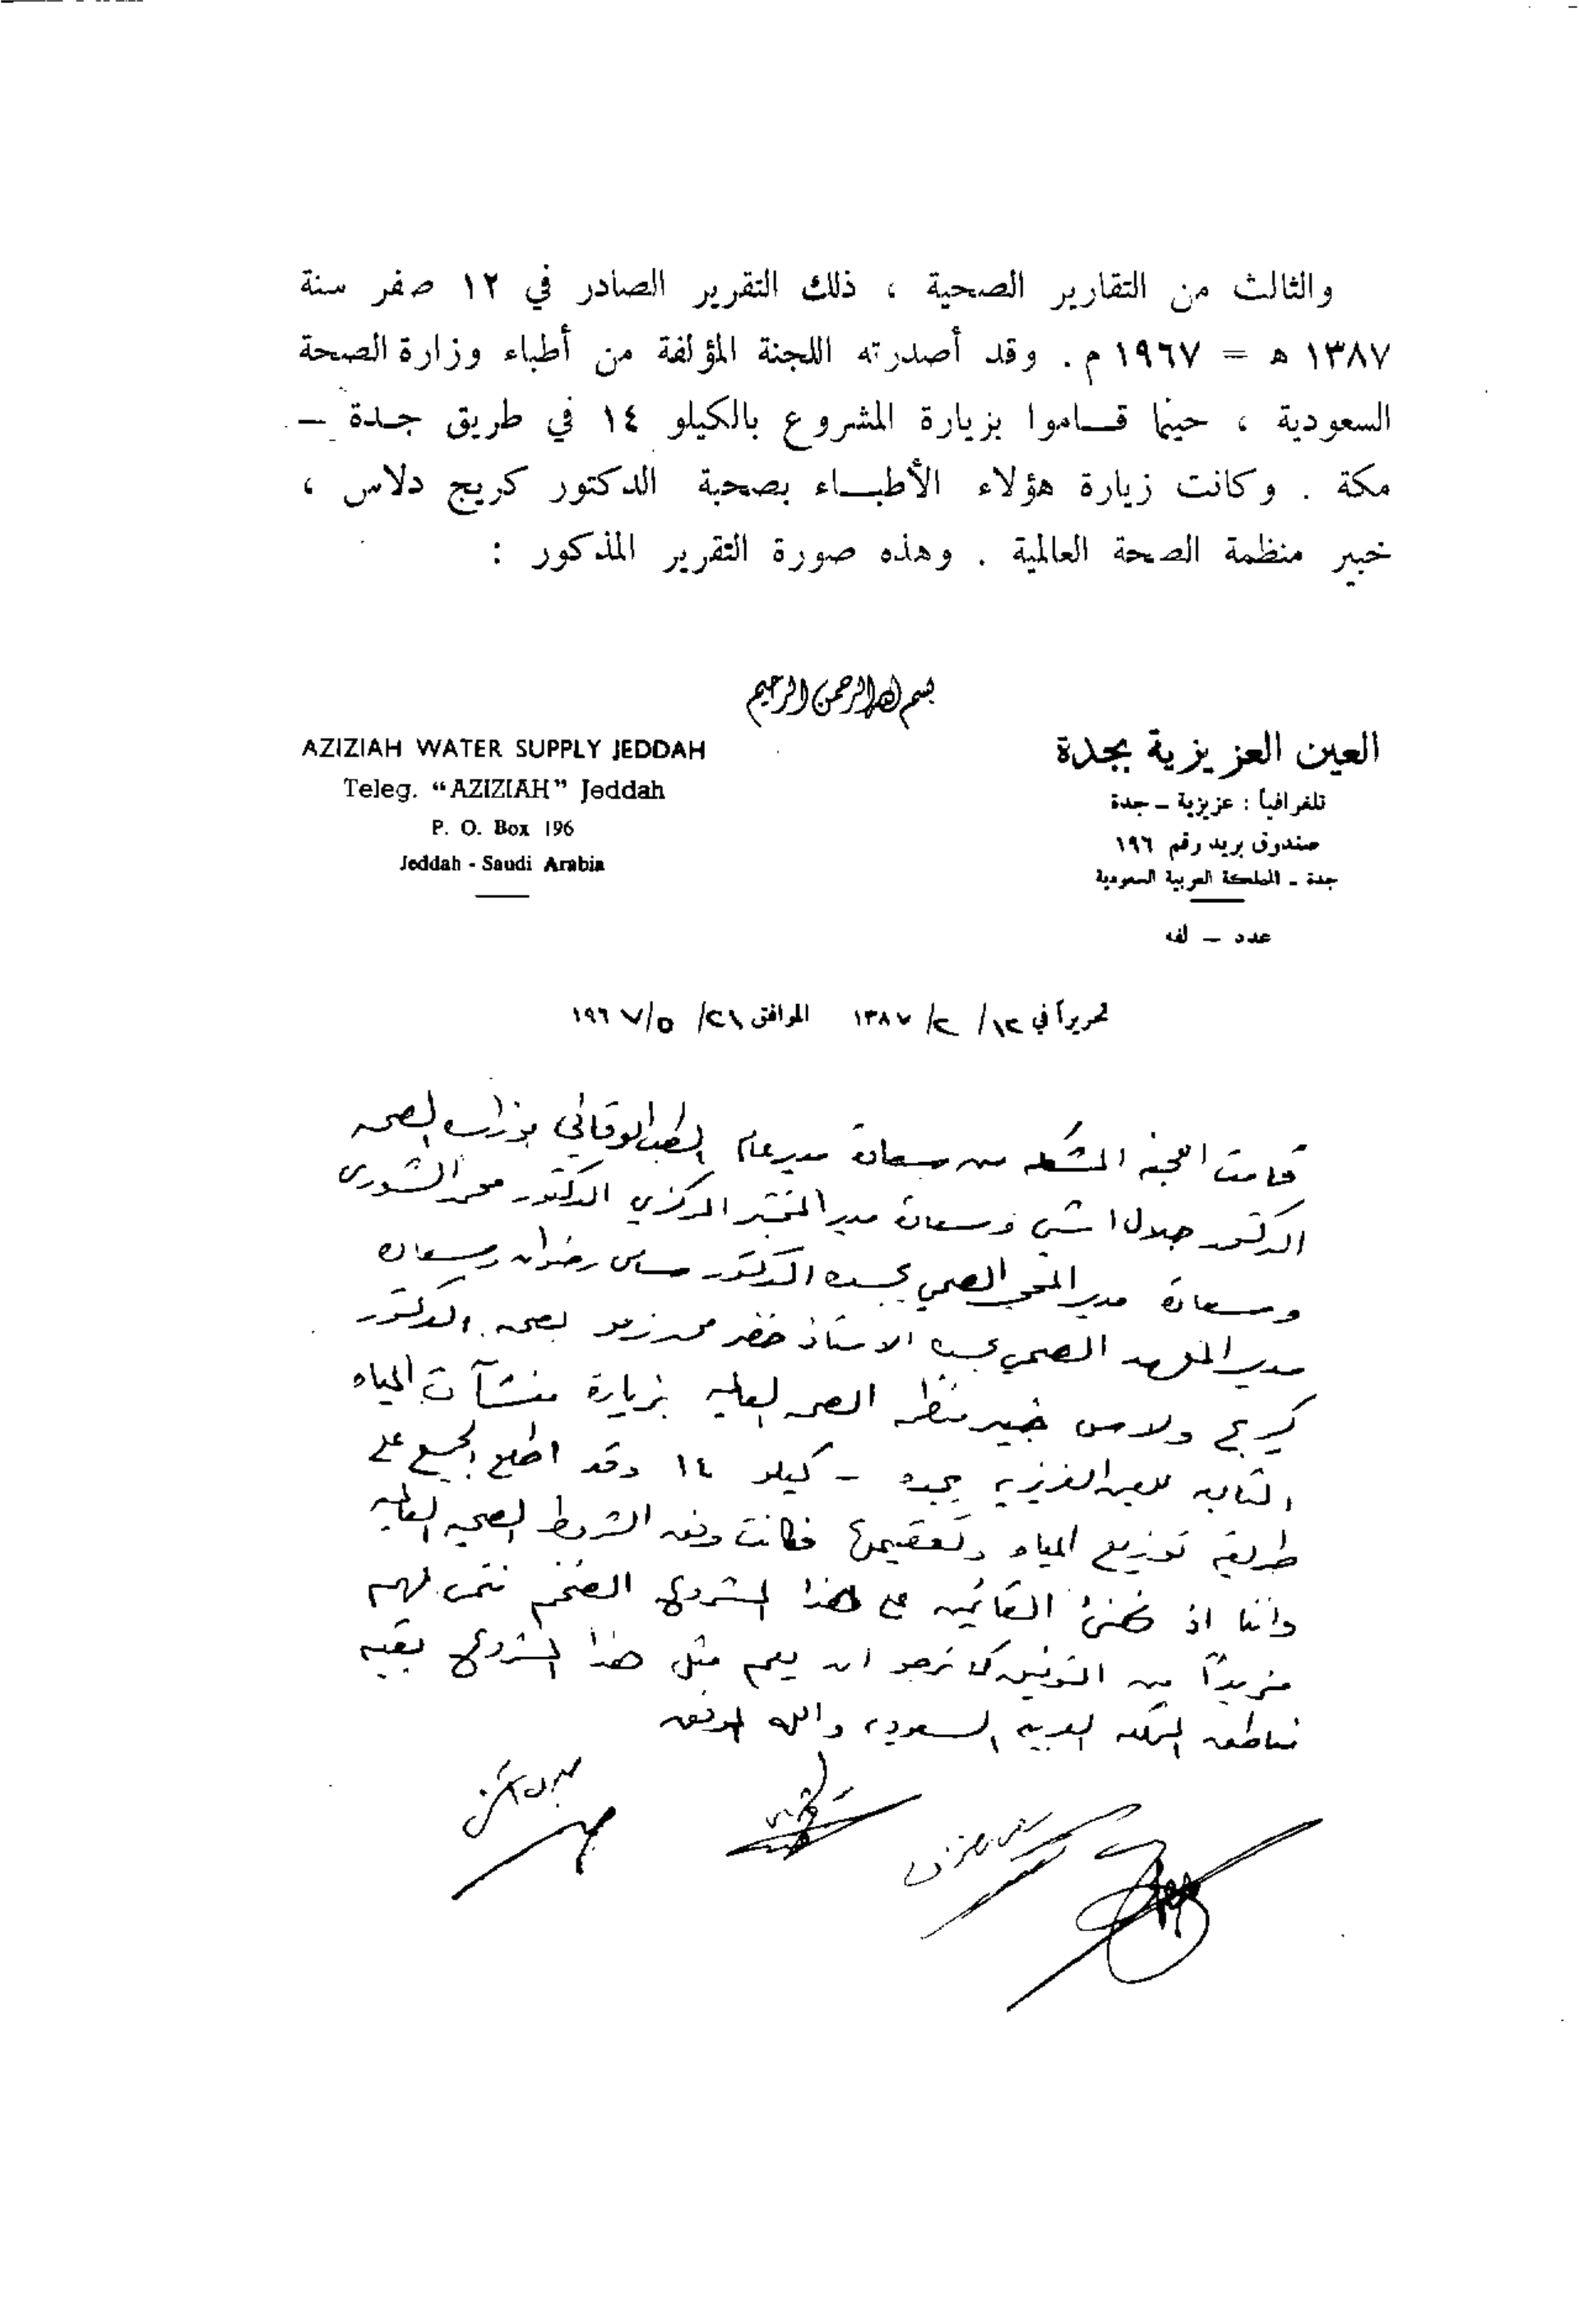 والثالث من التقارير الصحية ، ذلك التقرير الصادر في ١٢ صفر سنة
١٣٨٧ هـ = ١٩٦٧ م . وقد أصدرته اللجنة المؤلفة من أطباء وزارة الصحة
السعودية ، حينما قـــاموا بزيارة المشروع بالكيلو ١٤ في طريق جـدة –
مكة . وكانت زيارة هؤلاء الأطبـــاء بصحبة الدكتور كريج دلاس ،
خبير منظمة الصحة العالمية . وهذه صورة التقرير المذكور :
بسم الله الرحمن الرحيم
العين العزيزية بجدة
تلغرافياً : عزيزية – جدة
صندوق بريد رقم ١٩٦
جدة – المملكة العربية السعودية
عدد – لفه
AZIZIAH WATER SUPPLY JEDDAH
Teleg. “AZIZIAH” Jeddah
P. O. Box 196
Jeddah - Saudi Arabia
تحريراً في ١٢/ ٢/ ١٣٨٧ الموافق ٢١/ ٥/ ١٩٦٧
قامت اللجنة المشكله من سعادة مدير عام الطب الوقائي بوزارة الصحه
الدكتور جلال اشي وسعادة مدير المختبر المركزي الدكتور محمد الشورى
وسعادة مدير المحجر الصحي بجده الدكتور رضوان وسعادة
مدير المعهد الصحي بجده الاستاذ خضر محمد بصحبة الدكتور
كريج ولاس خبير منظمة الصحه العالميه بزيارة منشآت المياه
التابعه للعين العزيزيه بجده – كيلو ١٤ وقد اطلع الجميع على
طريقة توزيع المياه وتعقيمها فكانت وفق الشروط الصحيه العالميه
واننا اذ نهنئ القائمين على هذا المشروع الضخم نتمنى لهم
مزيداً من التوفيق كما نرجو ان يعم مثل هذا المشروع بقية
مناطق المملكه العربيه السعوديه والله الموفق